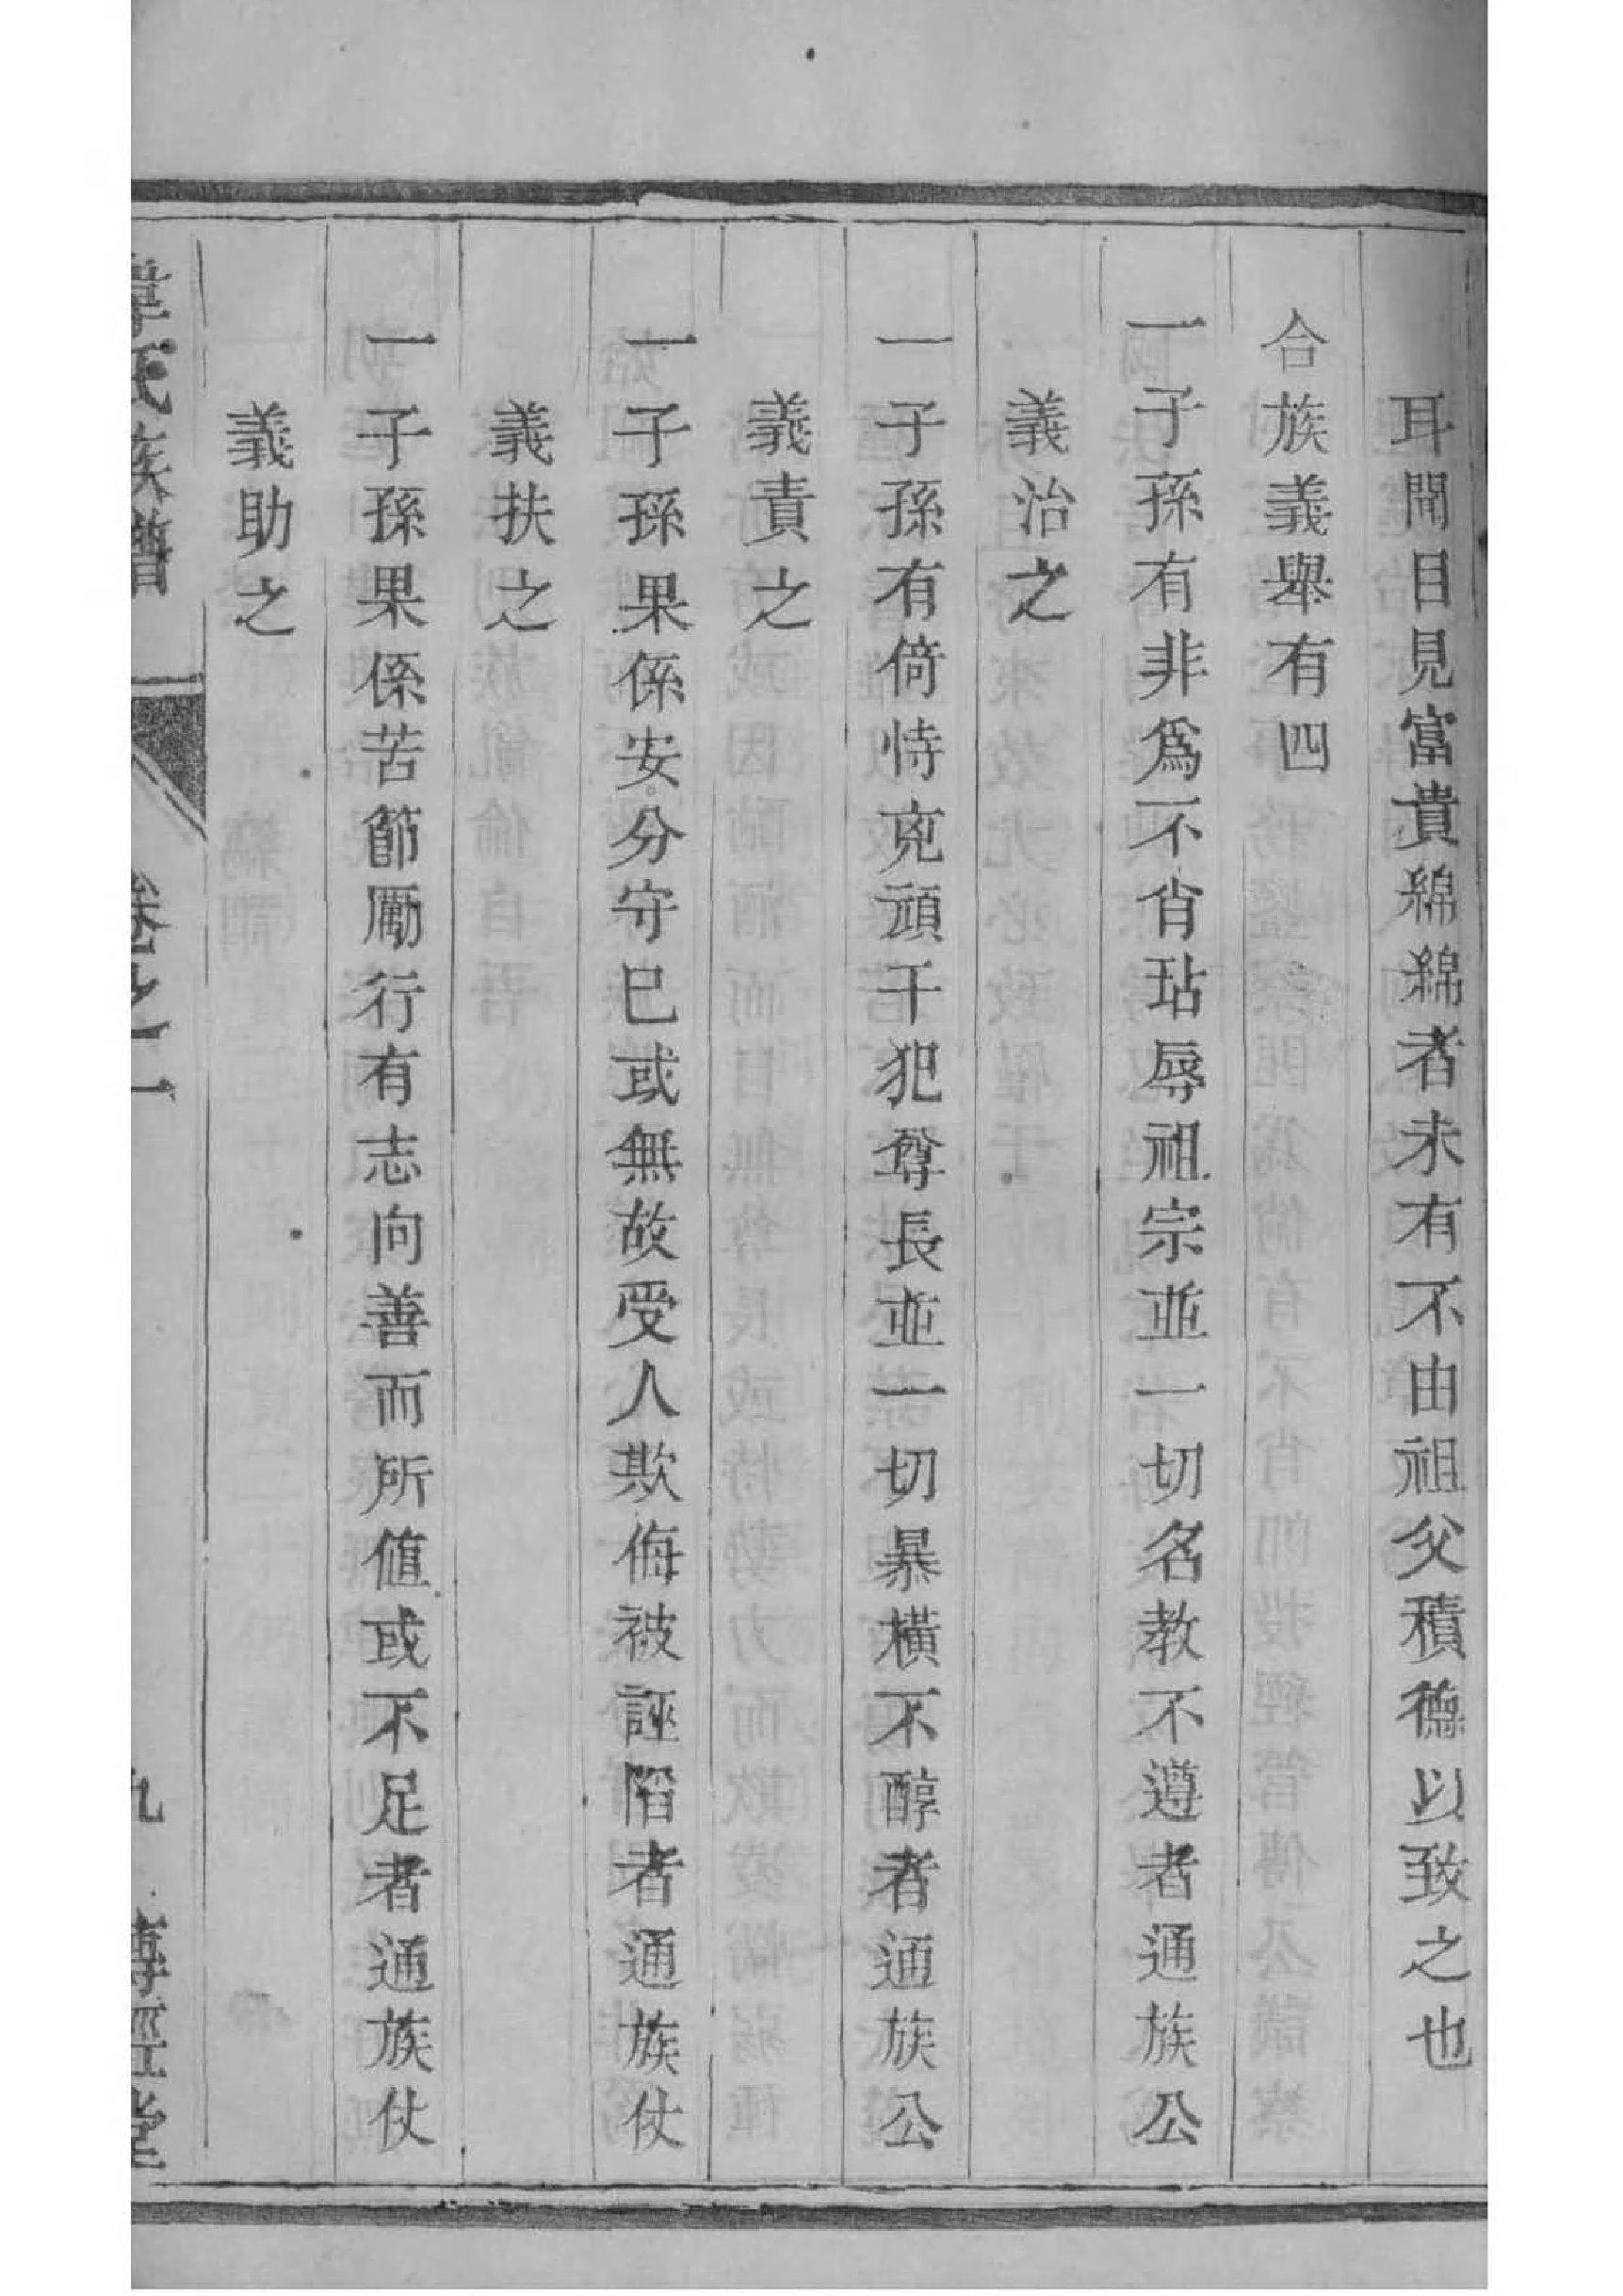 耳聞目見富貴綿綿者未有不由祖父積德以致之也
合族義舉有四
一子孫有非為不肖玷辱祖宗並一切名教不遵者通族公
義治之
一子孫有倚恃兇頑干犯尊長並一切暴橫不醇者通族公
義責之
一子孫果係安分守己或無故受人欺侮被誣陷者通族仗
義扶之
一子孫果係苦節勵行有志向善而所值或不足者通族仗
義助之
氏族譜
卷之一
九
傳經堂